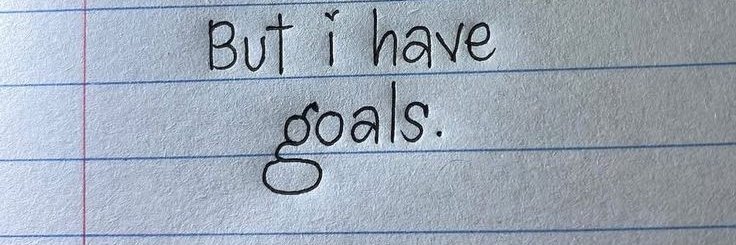 But i have
goals.